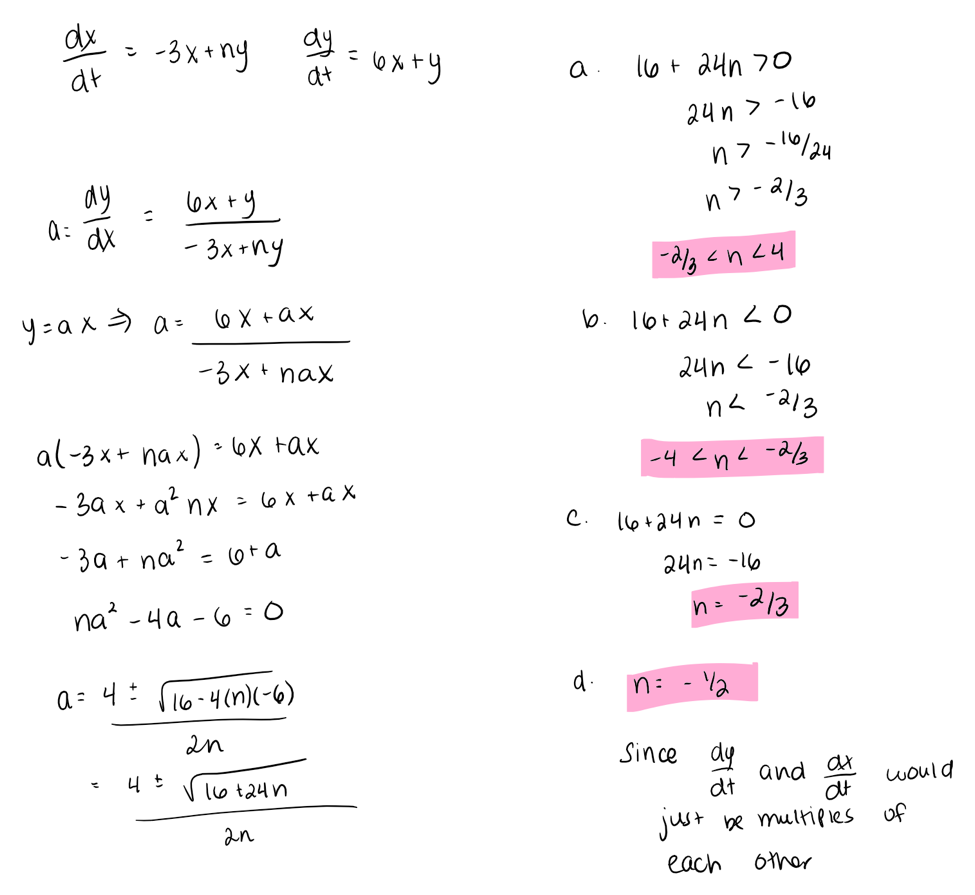 dx/dt = -3x+ny    dy/dt = 6x+y
a = dy/dx = (6x+y)/(-3x+ny)
y=ax ⇒ a = (6x+ax)/(-3x+nax)
a(-3x+nax) = 6x+ax
-3ax + a²nx = 6x+ax
-3a + na² = 6+a
na² - 4a - 6 = 0
a = (4 ± √(16-4(n)(-6)))/2n
= (4 ± √(16+24n))/2n
a. 16 + 24n > 0
24n > -16
n > -16/24
n > -2/3
-2/3 < n < 4
b. 16+24n < 0
24n < -16
n < -2/3
-4 < n < -2/3
c. 16+24n = 0
24n = -16
n = -2/3
d. n = -1/2
Since dy/dt and dx/dt would
just be multiples of
each other